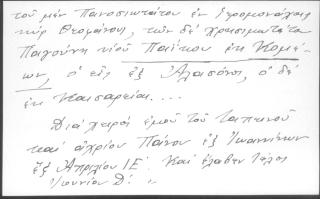 τοῦ μὲν Πανοσιωτάτου ἐν Ἱερομονάχοις
κὺρ Θεοφάνους, τῶν δὲ χρησιμωτάτων
Παγούνη υἱοῦ Παΐκου ἐκ Κομά-
νων, ὁ εἷς ἐξ Ἀλασόνα, ὁ δὲ
ἐκ Καισαρείας....
Διὰ χειρὸς ἐμοῦ τοῦ ταπεινοῦ
καὶ ἀχρίου Πάνου ἐξ Ἰωαννίνων
ἐξ Ἀπριλίου ΙΕ΄ καὶ ἔλαβεν τέλος
Ἰουνίου Δ΄. "